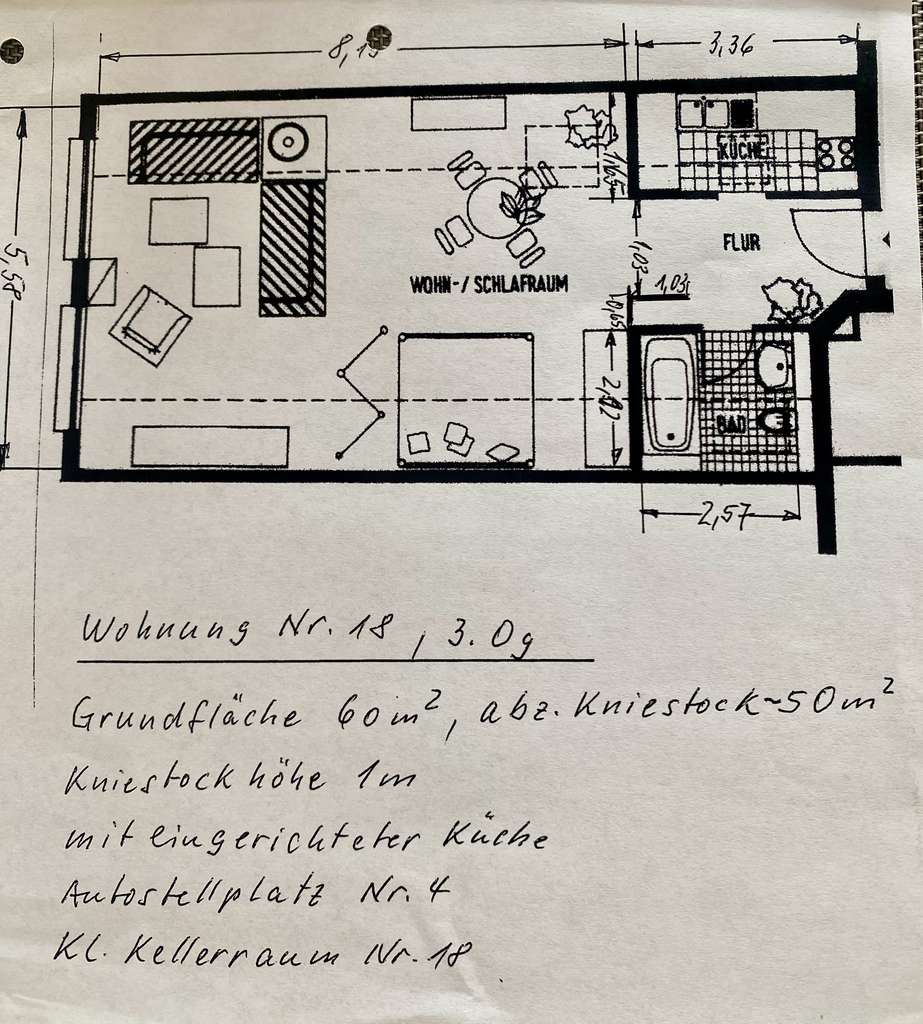 8,15
3,36
KÜCHE
1,65
5,58
1,03
FLUR
WOHN-/ SCHLAFRAUM
1,03
0,65
2,02
BAD
2,57
Wohnung Nr. 18, 3. Og
Grundfläche 60 m², abz. Kniestock ~50 m²
Kniestockhöhe 1m
mit eingerichteter Küche
Autostellplatz Nr. 4
Kl. Kellerraum Nr. 18